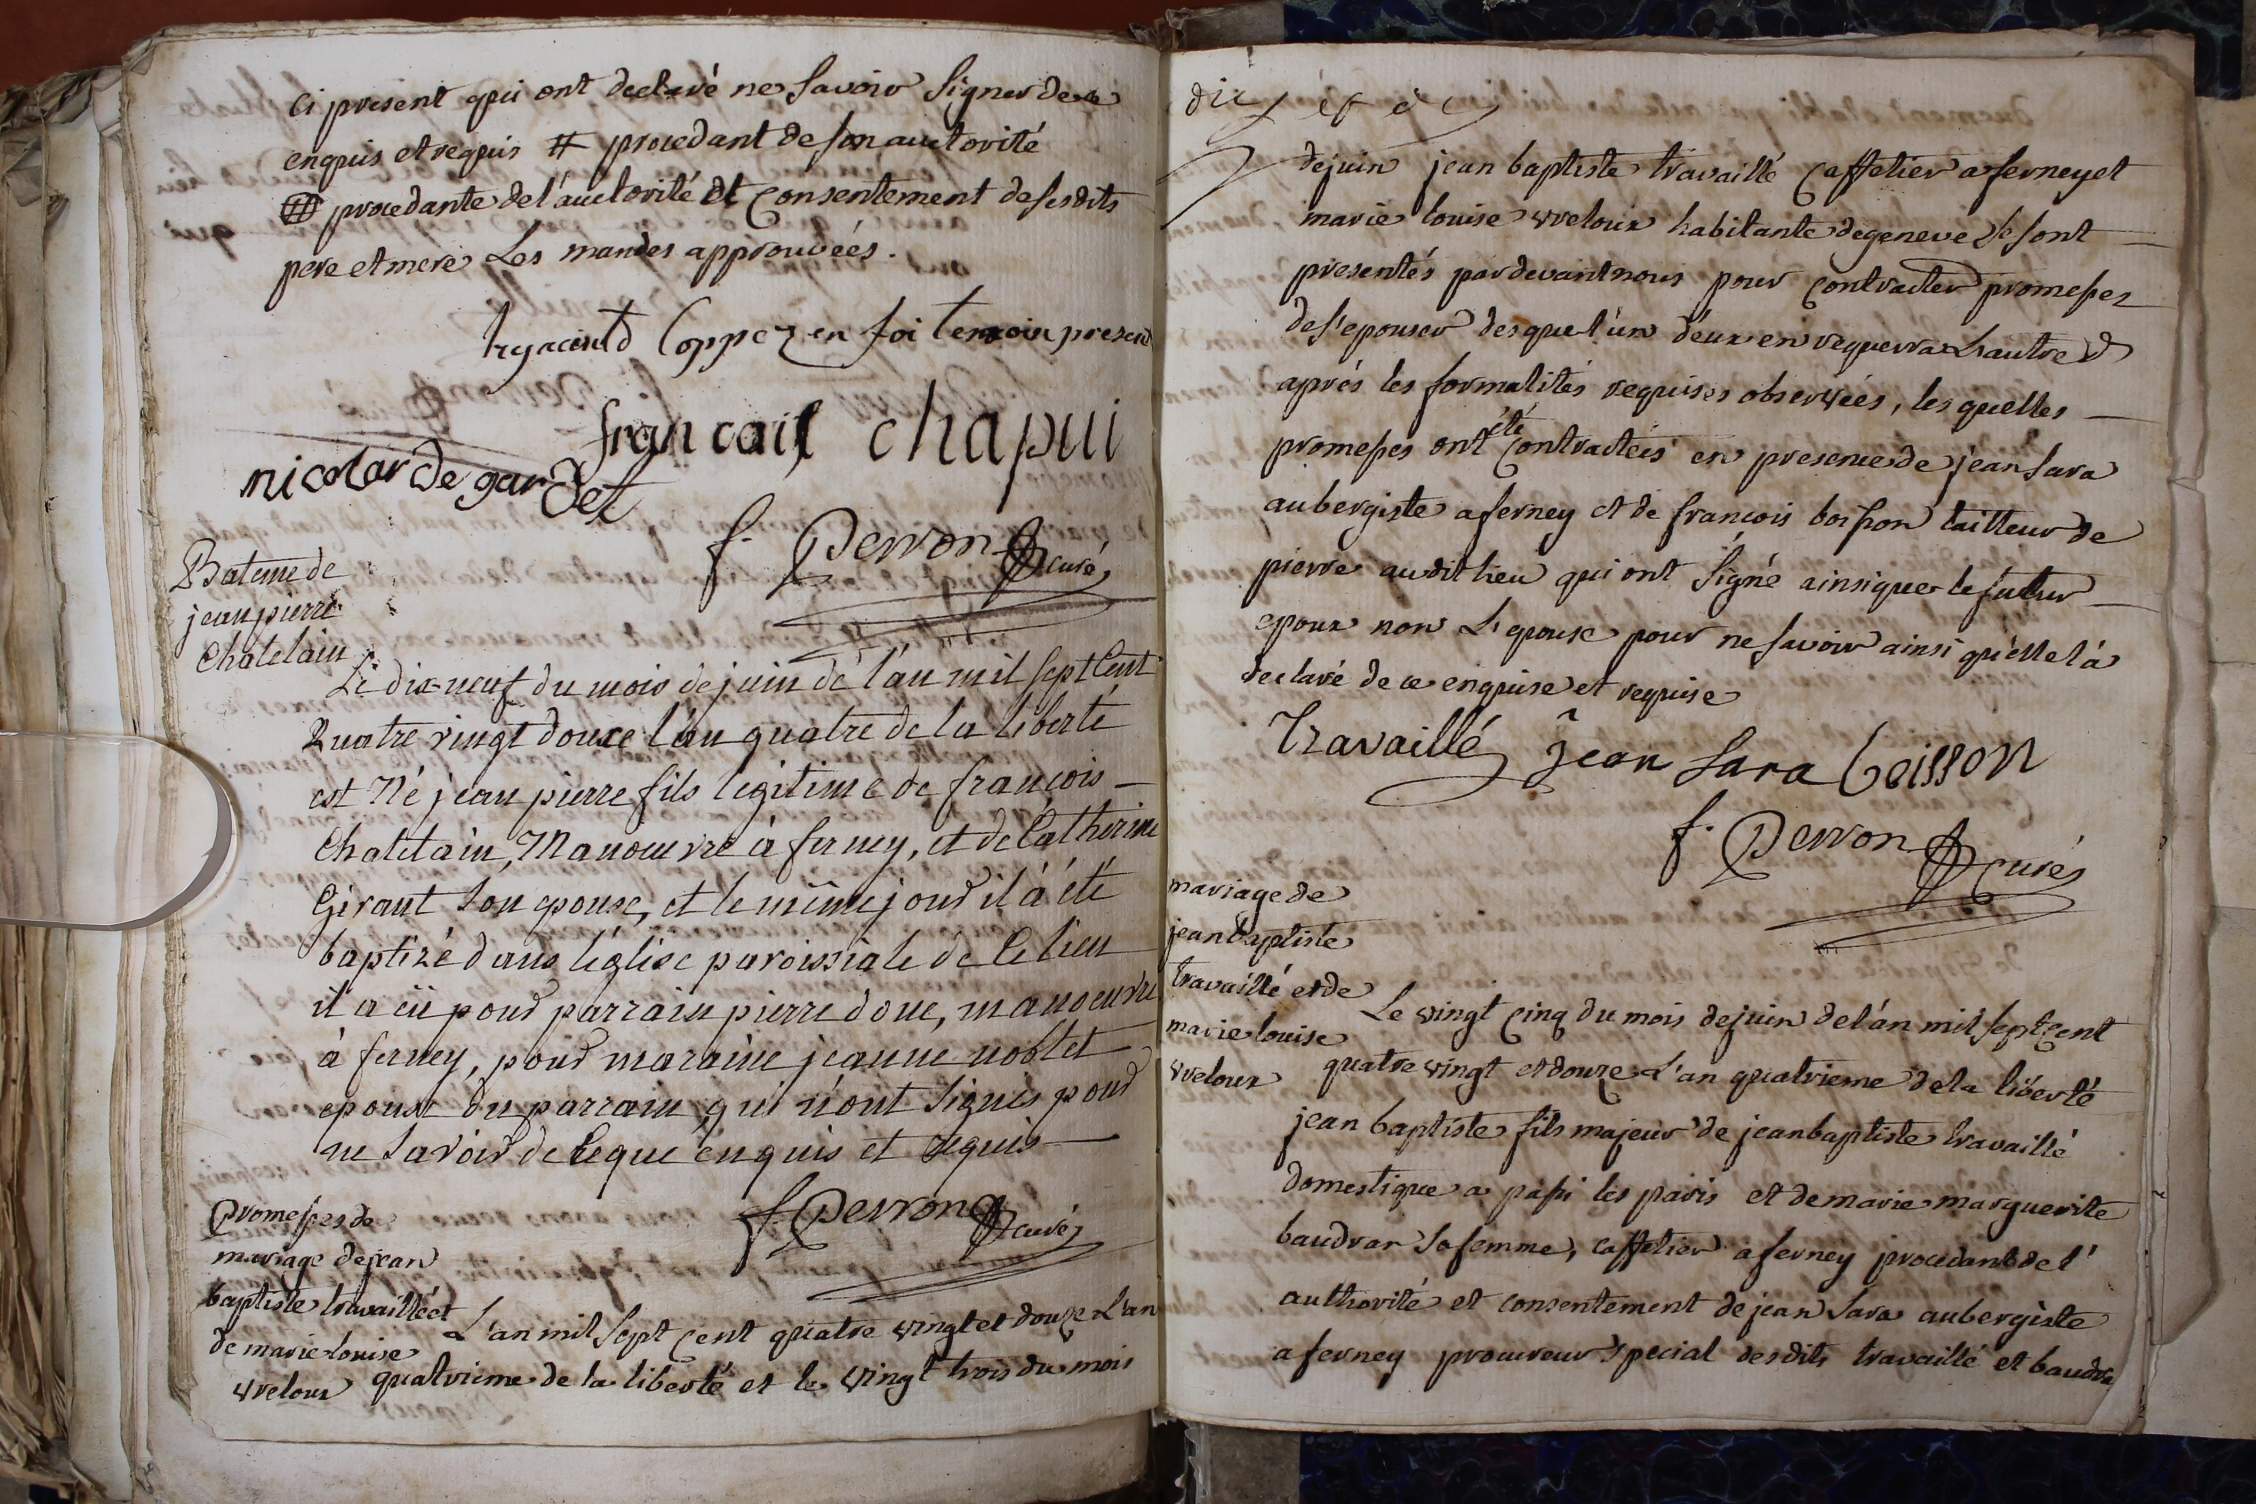 ci present qui ont declaré ne savoir signer de ce
enquis et requis # procedant de son auctorité
# procedante de l'auctorité et consentement de ses dits
pere et mere les mandes approuvées.
hyacint Coppez en foi temoin present
francaif chapui
nicolar de gardet
f. Perron curé
Bateme de
jean pierre
Chatelain
Le dix-neuf du mois de juin de l'an mil sept Cent
Quatre vingt douze l'an quatre de la liberté
est Né jean pierre fils légitime de françois
Chatelain, Manoeuvre à ferney, et de Catherine
Girant son epouse, et le même jour il à été
baptizé dans l'église paroissiale de Ce lieu
il a eü pour parrain pierre done, manoeuvre
à ferney, pour maraine jeanne noblet
epouse du parrain, qui n'ont signés pour
ne savoir de Ce que enquis et requis
f. Perron curé
Promesses de
mariage de jean
baptiste travaillé et
de marie louise
vveloux
L'an mil sept cent quatre vingt et douze L'an
quatrieme de la liberté et le vingt trois du mois
de juin jean baptiste travaillé Caffetier a ferney et
marie louise vveloux habitante de geneve se sont
presentés pardevant nous pour contracter promesses
de s'epouser des que l'un d'eux en requerra L'autre et
aprés les formalités requises observées, les quelles
promesses ont été contractées en presence de jean sara
aubergiste a ferney et de francois boisson tailleur de
pierre audit lieu qui ont signé ainsi que le futur
epoux non L'epouse pour ne savoir ainsi qu'elle l'a
declaré de ce enquise et requise
Travaillé jean sara boisson
f. Perron curé
mariage de
jean baptiste
travaillé et de
marie louise
vveloux
Le vingt cinq du mois de juin de l'an mil sept Cent
quatre vingt et douze L'an quatrieme de la liberté
jean baptiste fils majeur de jean baptiste travaillé
domestique a passi les paris et de marie marguerite
baudran sa femme, caffetier a ferney procedant de l'
authorité et consentement de jean sara aubergiste
a ferney procureur special desdits travaillé et baudra